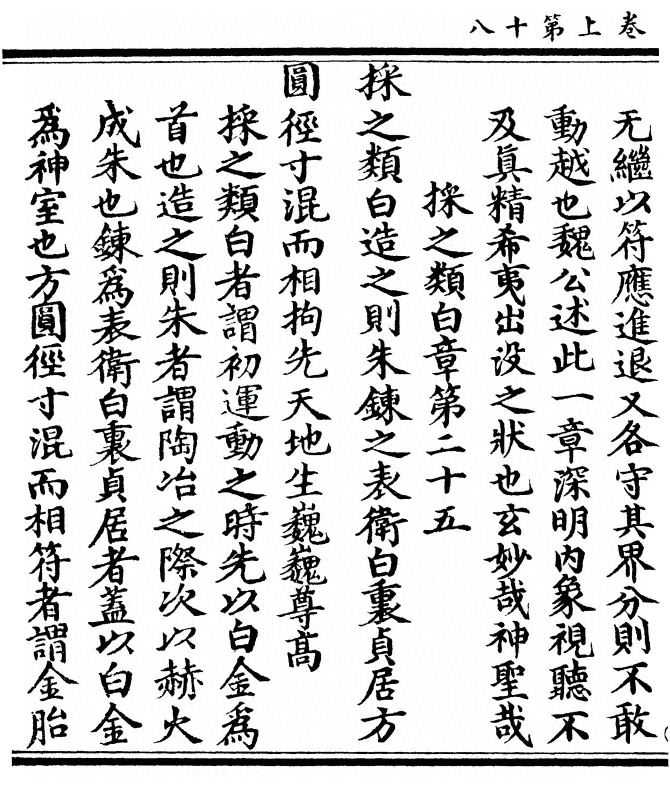 卷上第十八
无繼以符應進退又各守其界分則不敢
動越也魏公述此一章深明內象視聽不
及真精希夷出没之狀也玄妙哉神聖哉
採之類白章第二十五
採之類白造之則朱鍊之表衛白裏貞居方
圓徑寸混而相拘先天地生巍巍尊高
採之類白者謂初運動之時先以白金為
首也造之則朱者謂陶冶之際次以赫火
成朱也鍊為表衛白裏貞居者蓋以白金
為神室也方圓徑寸混而相符者謂金胎